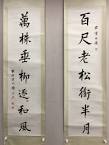 百尺老松銜半月
萬株垂柳逐和風